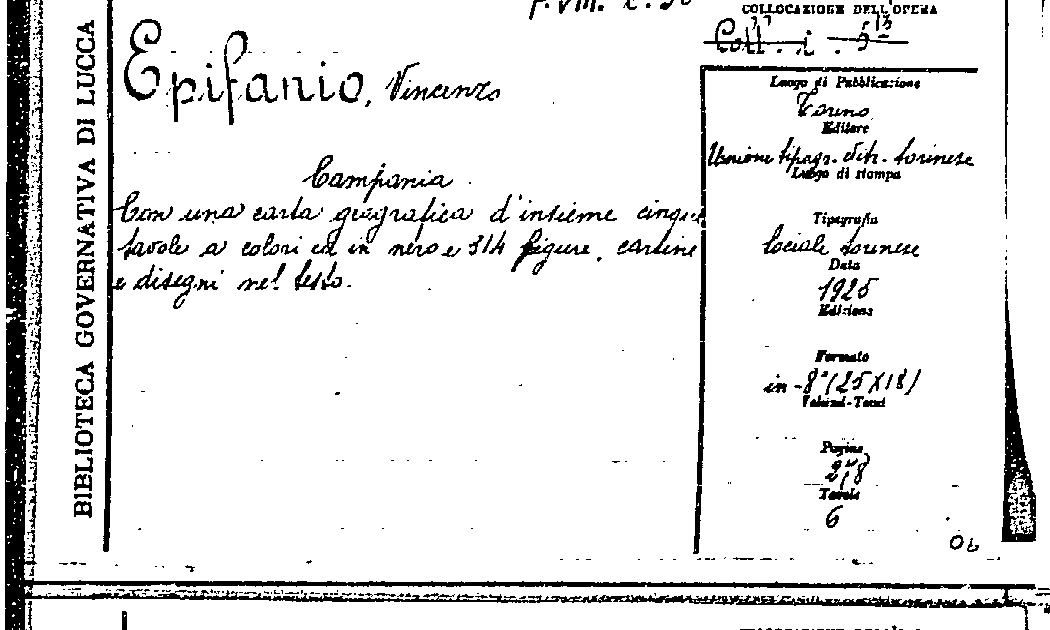 BIBLIOTECA GOVERNATIVA DI LUCCA
COLLOCAZIONE DELL'OPERA
Coll. i.
Epifanio, Vincenzo
Campania
Con una carta geografica d'insieme cinque
tavole a colori ed in nero e 314 figure, cartine
e disegni nel testo.
Luogo di Pubblicazione
Torino
Editore
Unione tipogr. edit. torinese
Luogo di stampa
Tipografia
Sociale torinese
Data
1925
Edizione
Formato
in-8° (25X18)
Volumi-Tomi
Pagine
278
Tavole
6